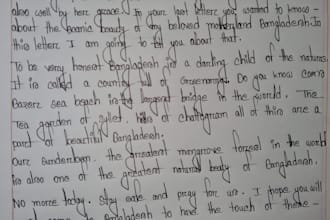 also well by here grace. In your last letter you wanted to know -
about the scenic beauty of my beloved motherland Bangladesh. In
this letter I am going to tell you about that.
To be very honest Bangladesh is a darling child of the nature.
It is called a country full of Greenary. Do you know Cox's
Bazar sea beach is the largest bridge in the world. The
Tea garden of sylhet, hills of chattagram all of this are a
part of beautiful Bangladesh.
Our sundarban. the greatest mangrove forest in the world
is also one of the greatest natural beauty of Bangladesh.
No more today. Stay safe and pray for us. I hope you will
to Bangladesh to have the touch of these -